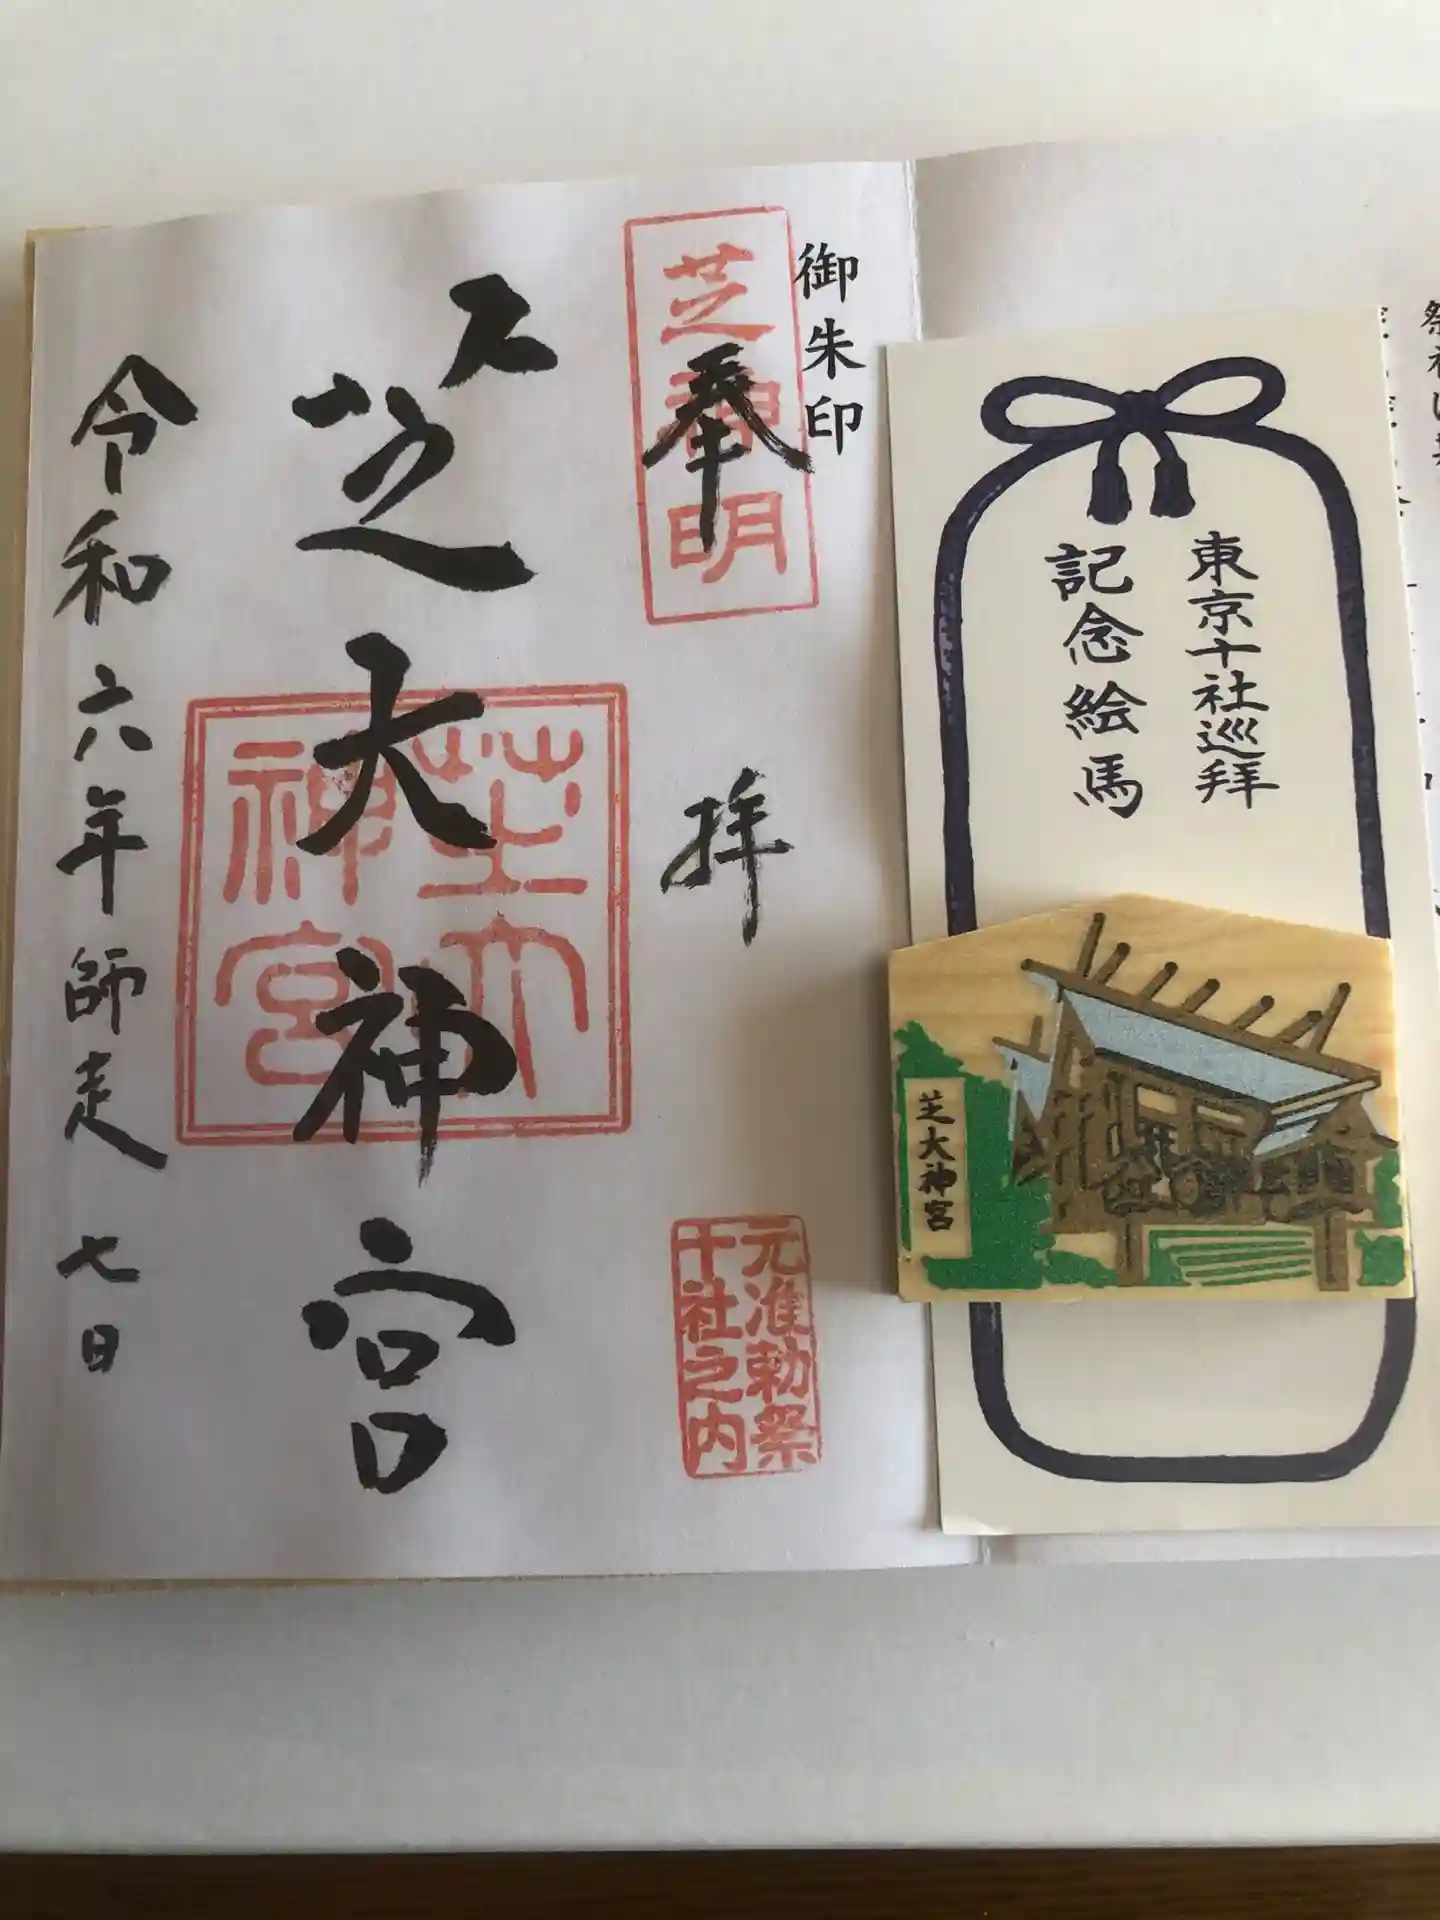 御朱印
芝神明
奉拝
元准勅祭
十社之内
芝大神宮
芝大神宮
令和六年師走七日
東京十社巡拝
記念絵馬
芝大神宮